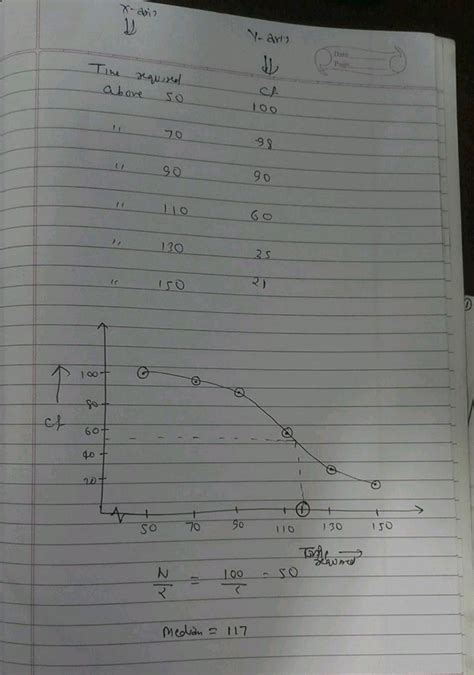 X-axis
Y-axis
Date
Page
Time required
Cf
above 50 100
" 70 98
" 90 90
" 110 60
" 130 35
" 150 21
100
80
60
40
20
Cf
50 70 90 110 130 150
Time required
N/2 = 100/2 = 50
Median = 117